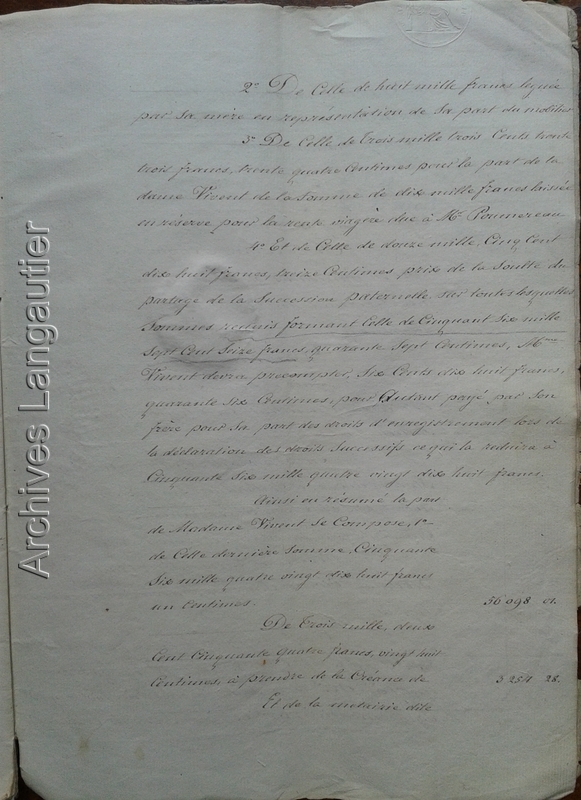 2° De Celle de huit mille francs léguée
par sa mère en représentation de sa part du mobilier
3° De Celle de Trois mille trois Cents trente
trois francs, trente quatre Centimes pour la part de la
dame Vivent de la Somme de dix mille francs laissée
en réserve pour la rente viagère due à Mr Poumereau
4° Et de Celle de douze mille, Cinq Cent
dix huit francs, treize Centimes prix de la Soulte du
partage de la Succession paternelle sur toutes lesquelles
Sommes réunis formant Celle de Cinquant Six mille
Sept Cent Seize francs, quarante Sept Centimes, Mme
Vivent devra precompter, Six Cents dix huit francs,
quarante Six Centimes, pour Autant payé par Son
frère pour Sa part des droits d'enregistrement lors de
la déclaration des droits Successifs ce qui la reduira à
Cinquante Six mille quatre vingt dix huit francs.
Ainsi en résumé la part
de Madame Vivent Se Compose, 1°
de Celle dernière Somme, Cinquante
Six mille quatre vingt dix huit francs
un Centimes 56 098 01.
De Trois mille, deux
Cent Cinquante quatre francs, vingt huit
Centimes, à prendre de la Créance de 3 254 28.
Et de la notairie dite
Archives Langautier